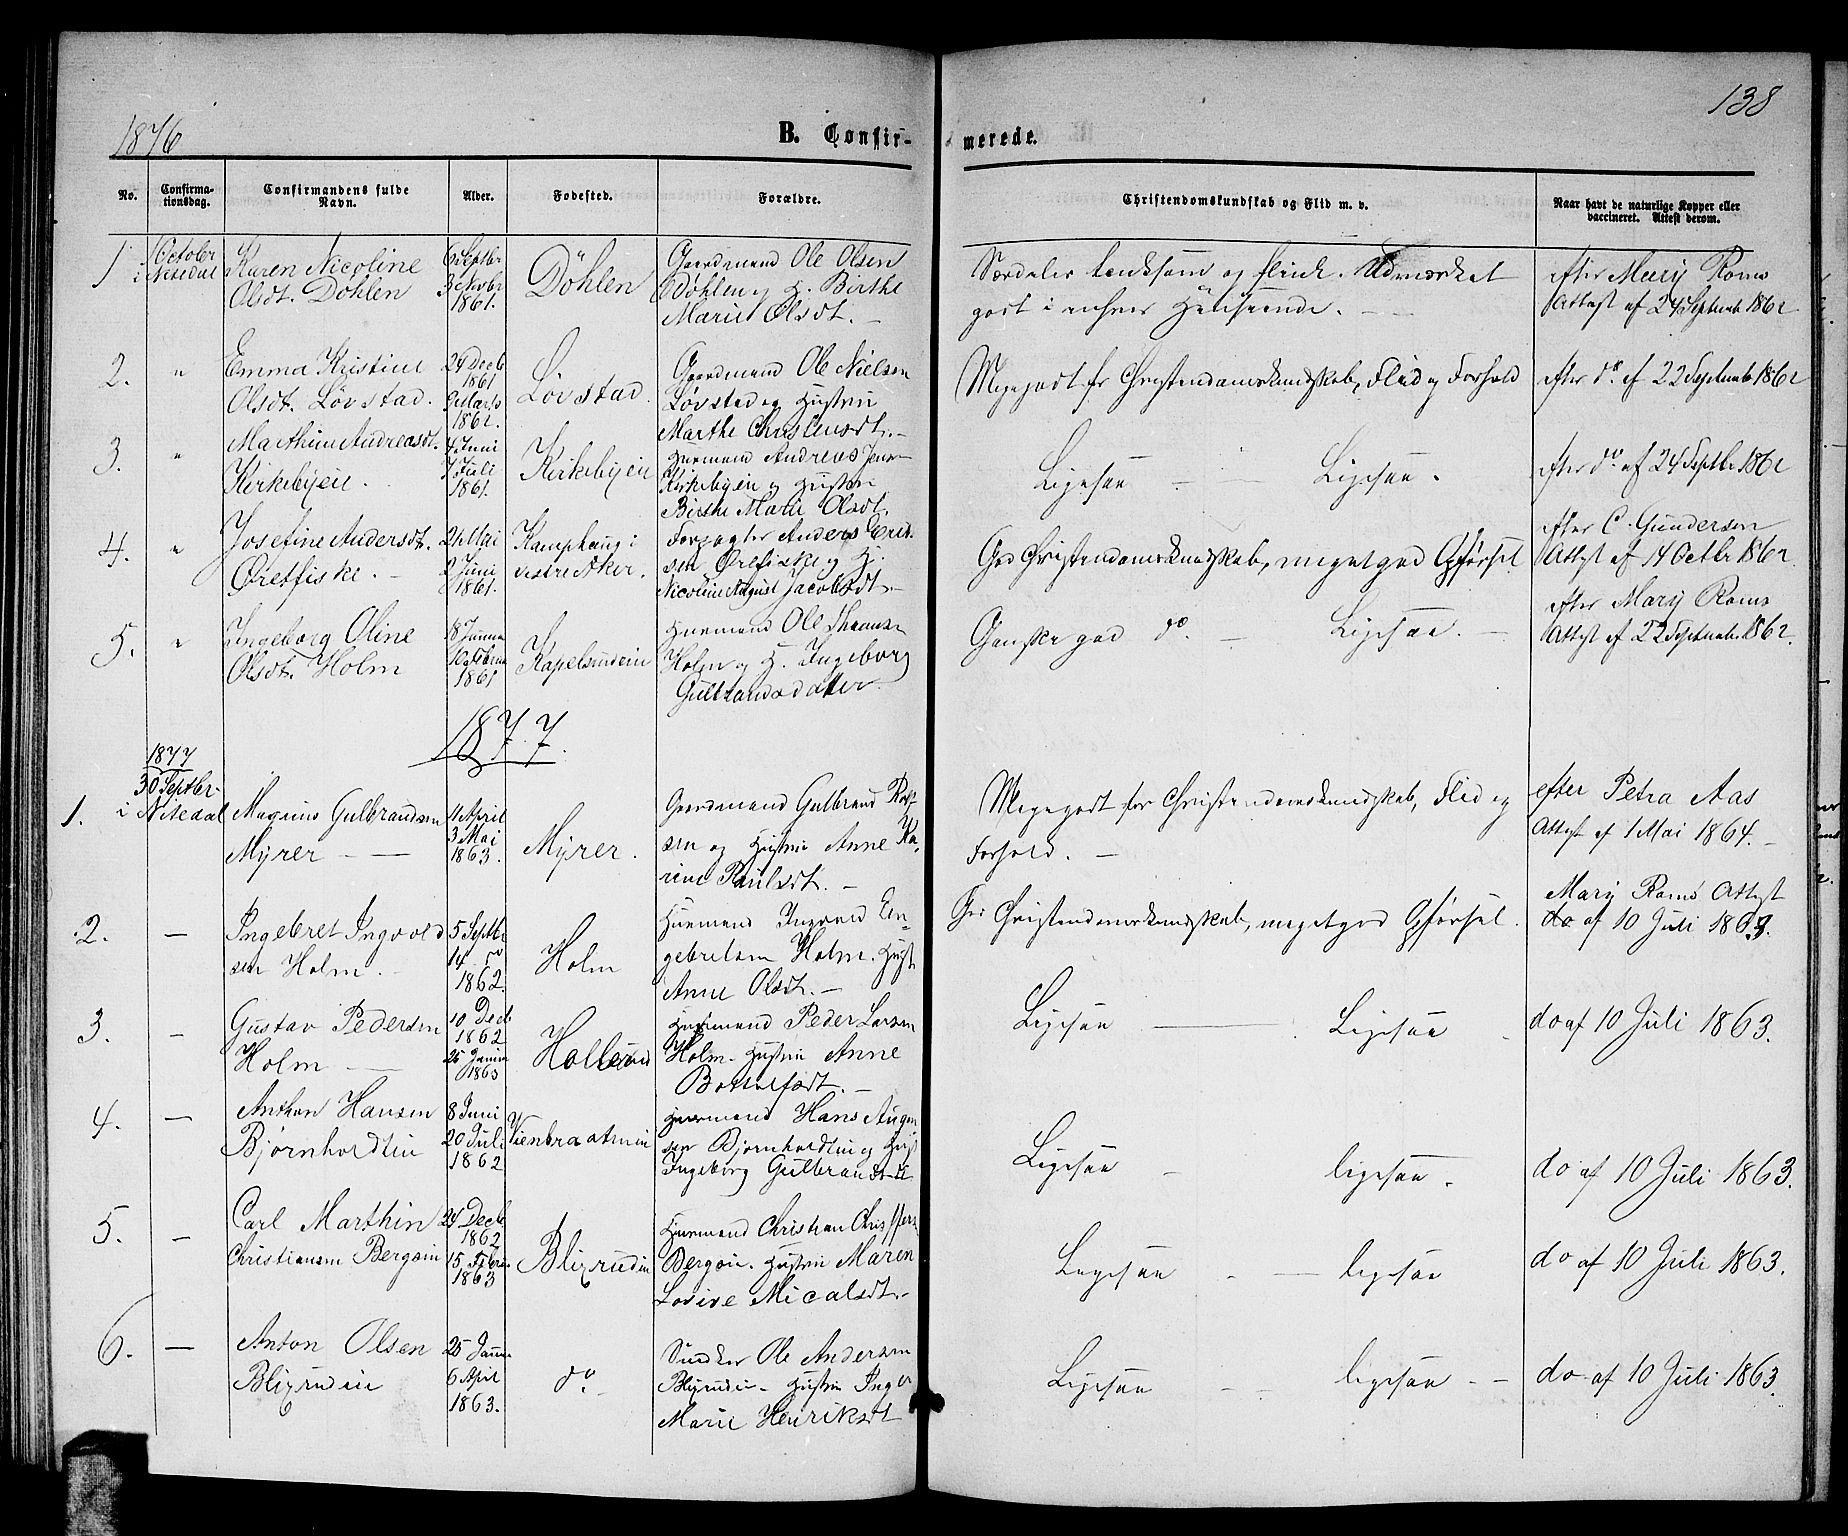 1876
B. Confir-
merede.
138
No.
Confirma-
tionsdag.
Confirmandens fulde
Navn.
Alder.
Fodested.
Forældre.
Christendomskundskab og Flid m. v.
Naar havt de naturlige Kopper eller
vaccineret. Attest derom.
1
October
i Nitedal
Karen Nicoline
Olsdt. Döhlen
6 Septbr
3 Novbr
1861.
Döhlen
Gaardmand Ole Olsen
Döhlen og H. Birthe
Marie Olsdt. –
Særdeles tænksom og flink. Udmærket
godt i enhver Henseende. –
efter Mary Roms
Attest af 24 Septemb 1862
2.
"
Emma Kristine
Olsdt. Lövstad.
29 Decb
1861
9 Marts
1862.
Lövstad.
Gaardmand Ole Nielsen
Lövstad og Hustru
Marthe Christensdt. –
Megegodt for Christendomskundskab, Flid og Forhold
efter do af 22 Septemb 1862
3.
"
Marthine Andreasdt.
Kirkebyeie.
4 Juni
7 Juli
1861.
Kirkebyeie
Huusmand Andreas Jens
Kirkebyeie og Hustru
Birthe Marie Olsdt.
Ligesaa – Ligesaa.
efter do af 24 Septbr 1862
4.
"
Josefine Andersdt.
Örefiske. –
24 Mai
2 Juni
1861.
Kamphaug i
vestre Aker.
Forpagter Anders Erik
sen Örefiske og H.
Nicoline August Jacobsdt. –
God Christendomskundskab, meget god Opförsel
efter C. Gundersen
Attest af 14 Octbr 1862
5.
"
Ingeborg Oline
Olsdt. Holm
18 Januar
10 Februar
1861
Kapelsrudeie
Huusmand Ole
Holm og H. Ingeborg
Gulbrandsdatter.
Ganske god do. – Ligesaa. –
efter Mary Roms
Attest af 22 Septemb 1862.
1877.
1.
1877
30 Septbr.
i Nitedal
Magnus Gulbrandsen
Myrer –
11 April
3 Mai
1863.
Myrer.
Gaardmand Gulbrand
sen og Hustru Anne Ka-
rine Paulsdt. –
Megegodt for Christendomskundskab, Flid og
Forhold. –
efter Petra Aas
Attest af 1 Mai 1864. –
2.
–
Ingebret Ingvold
sen Holm. –
5 Septbr
14 do
1862.
Holm
Huusmand Ingvold En-
gebretsen Holm. Hust
Anne Olsdt. –
God Christendomskundskab, meget god Opförsel.
Mary Roms Attest
do af 10 Juli 1863.
3.
–
Gustav Pedersen
Holm –
10 Decb
1862
25 Januar
1863
Hollerud
Huusmand Peder Larsen
Holm. Hustru Anne
Bottolfsdt. –
Ligesaa – Ligesaa
do af 10 Juli 1863.
4.
–
Anthon Hansen
Björnholdteie
8 Juni
20 Juli
1862
Huusmand Hans Augen
sen Björnholdteie og Hust
Ingeborg Gulbrandsdt
Ligesaa – ligesaa.
do af 10 Juli 1863.
5.
–
Carl Marthin
Christiansen Bergeie
24 Decb.
1862
15 Februar
1863
Blixrudeie
Huusmand Christian Christoffers
Bergeie. Hustru Maren
Lovise Micalsdt. –
Ligesaa – ligesaa
do af 10 Juli 1863.
6.
–
Anton Olsen
Blixrudeie
25 Januar
6 April
1863.
do.
Snedker Ole Andersen
Blixrudeie. Hustru Inger
Marie Henriksdt
Ligesaa – ligesaa –
do af 10 Juli 1863.